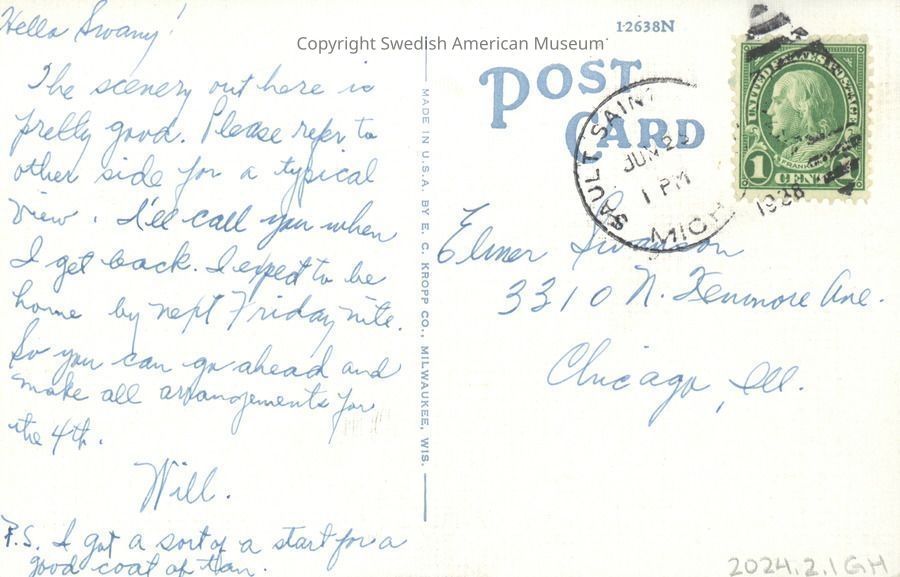 Hello Swany!
The scenery out here is
pretty good. Please refer to
other side for a typical
view. I'll call you when
I get back. I expect to be
home by next Friday nite.
So you can go ahead and
make all arrangements for
the 4th.
Will.
P.S. I got a sort of a start for a
good coat of tan.
Copyright Swedish American Museum
MADE IN U.S.A. BY E. C. KROPP CO., MILWAUKEE, WIS.
12638N
POST
CARD
SAULT SAINT
JUN 2
1 PM
MICH
1938
UNITED STATES POSTAGE
FRANKLIN
1 CENT
Elmer Swanson
3310 N. Kenmore Ave.
Chicago, Ill.
2024.2.1GH